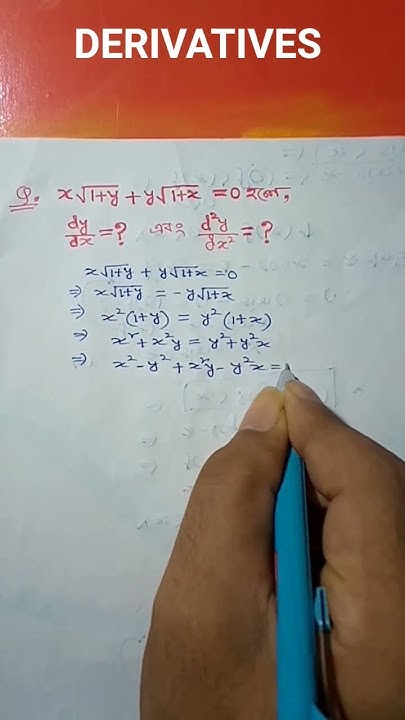 DERIVATIVES
Q. x√1+y + y√1+x = 0 হলে,
dy/dx = ? এবং d²y/dx² = ?
x√1+y + y√1+x = 0
⇒ x√1+y = -y√1+x
⇒ x²(1+y) = y²(1+x)
⇒ x² + x²y = y² + y²x
⇒ x² - y² + x²y - y²x =